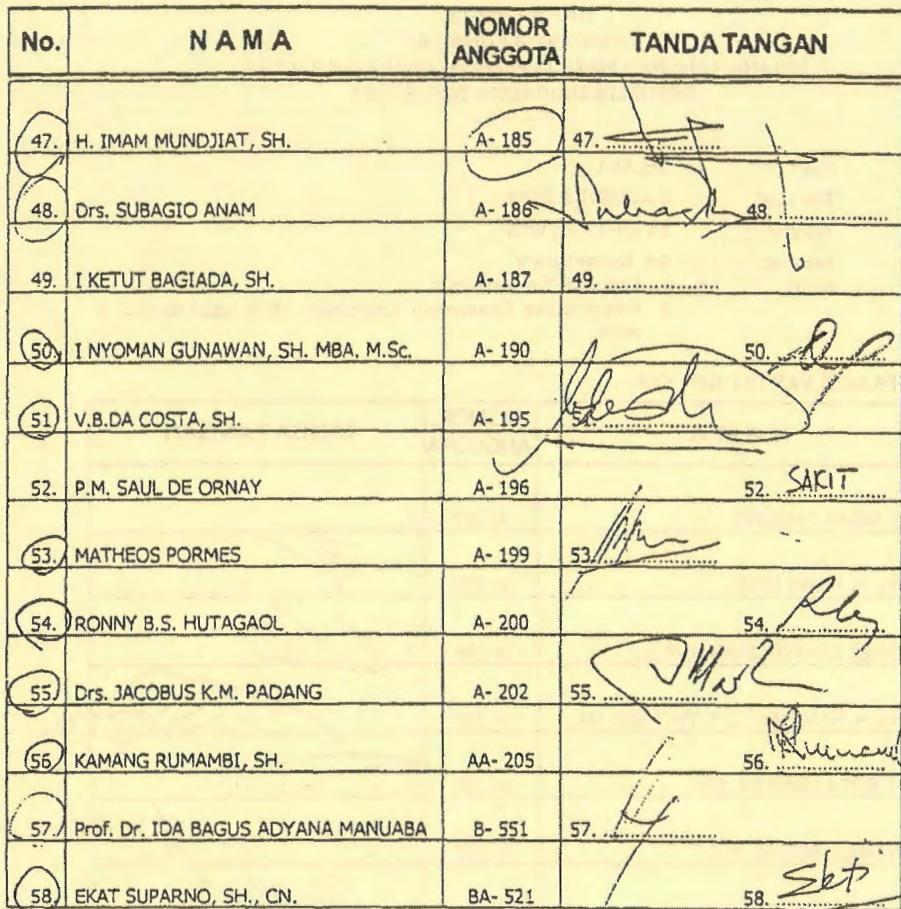 No. N A M A NOMOR ANGGOTA TANDA TANGAN
47. H. IMAM MUNDJIAT, SH. A- 185 47.
48. Drs. SUBAGIO ANAM A- 186 48.
49. I KETUT BAGIADA, SH. A- 187 49.
50. I NYOMAN GUNAWAN, SH. MBA. M.Sc. A- 190 50.
51 V.B.DA COSTA, SH. A- 195 51.
52. P.M. SAUL DE ORNAY A- 196 52. SAKIT
53. MATHEOS PORMES A- 199 53.
54. RONNY B.S. HUTAGAOL A- 200 54.
55. Drs. JACOBUS K.M. PADANG A- 202 55.
56. KAMANG RUMAMBI, SH. AA- 205 56.
57. Prof. Dr. IDA BAGUS ADYANA MANUABA B- 551 57.
58. EKAT SUPARNO, SH., CN. BA- 521 58.